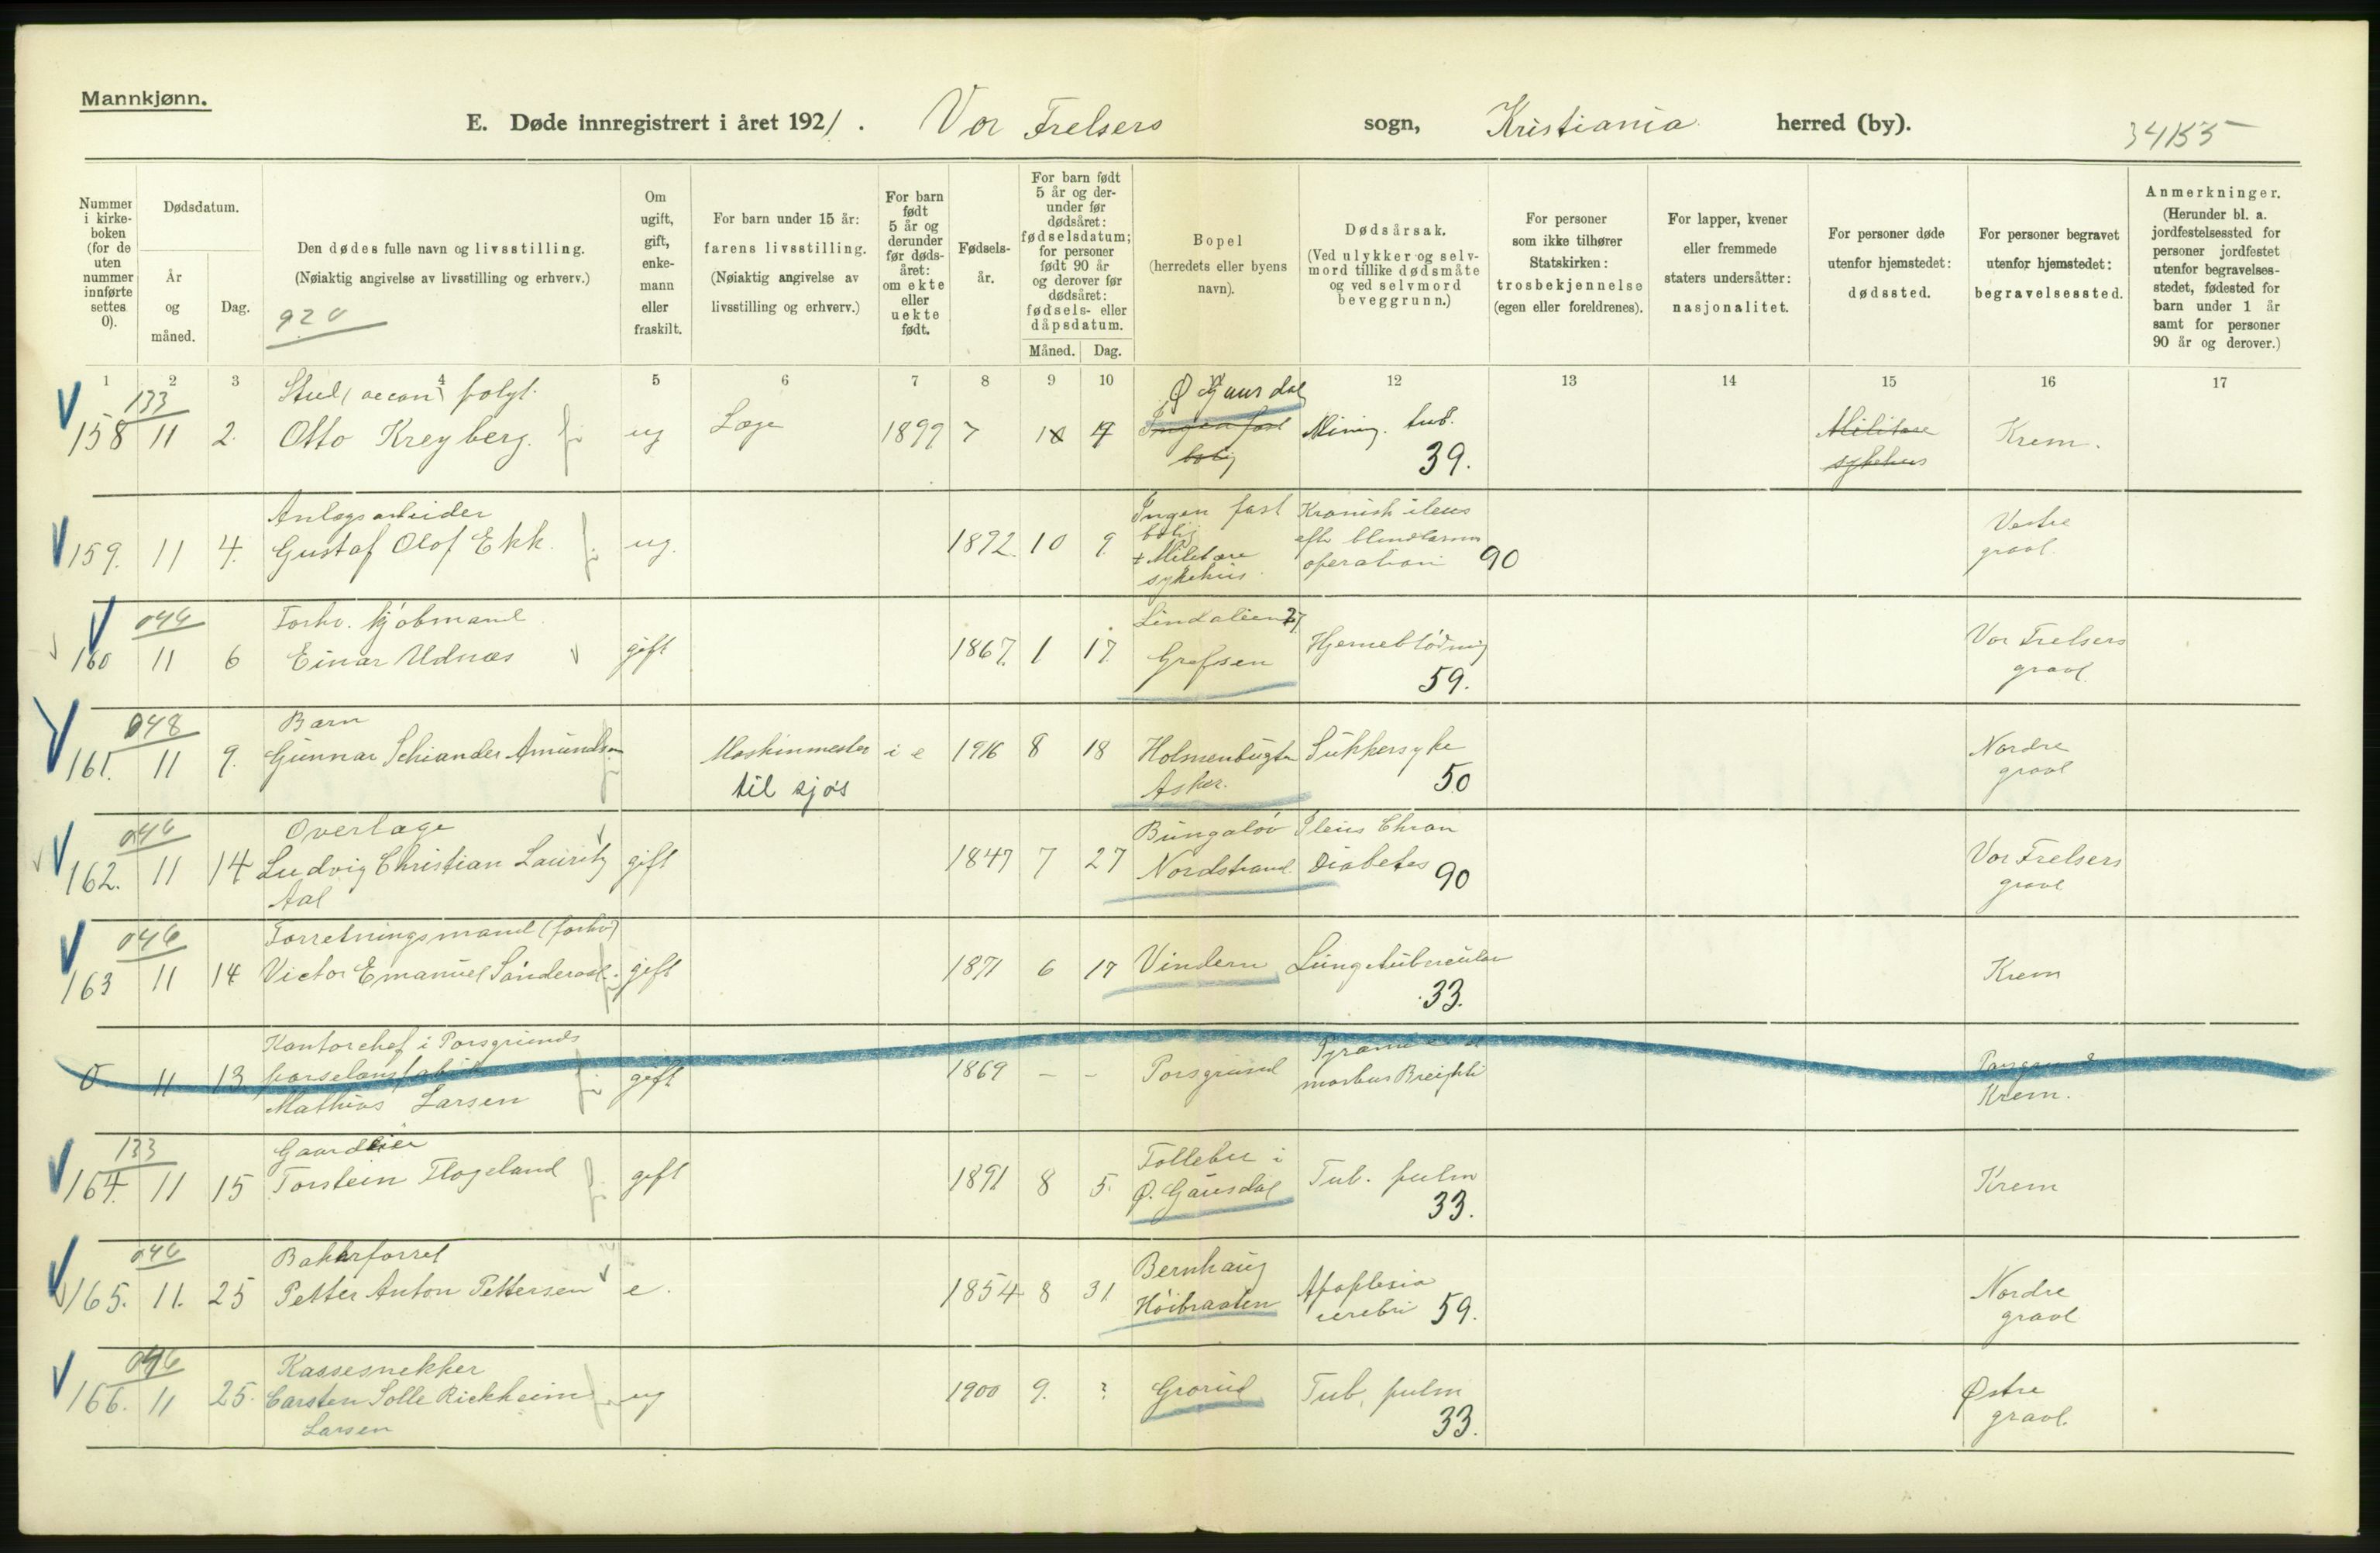 Mannkjønn.
E. Døde innregistrert i året 1921. Vor Frelsers sogn, Kristiania herred (by).
34155
Nummer i kirkeboken (for de uten nummer innførte settes 0).
Dødsdatum.
År og måned.
Dag.
Den dødes fulle navn og livsstilling.
(Nøiaktig angivelse av livsstilling og erhverv.)
920
Om ugift, gift, enkemann eller fraskilt.
For barn under 15 år:
farens livsstilling.
(Nøiaktig angivelse av livsstilling og erhverv.)
For barn født 5 år og derunder før dødsåret: om ekte eller uekte født.
Fødselsår.
For barn født 5 år og derunder før dødsåret: fødselsdatum; for personer født 90 år og derover før dødsåret: fødsels- eller dåpsdatum.
Måned. Dag.
Bopel
(herredets eller byens navn).
Dødsårsak.
(Ved ulykker og selvmord tillike dødsmåte og ved selvmord beveggrunn.)
For personer som ikke tilhører Statskirken: trosbekjennelse (egen eller foreldrenes).
For lapper, kvener eller fremmede staters undersåtter: nasjonalitet.
For personer døde utenfor hjemstedet: dødssted.
For personer begravet utenfor hjemstedet: begravelsessted.
Anmerkninger.
(Herunder bl. a. jordfestelsessted for personer jordfestet utenfor begravelsesstedet, fødested for barn under 1 år samt for personer 90 år og derover.)
1 2 3 4 5 6 7 8 9 10 11 12 13 14 15 16 17
133 Stud. oecon Ø Gausdal
158 11 2. Otto Kreyberg. ug Læge 1899 7 Ingen fast Mining. tub. Militære Krem.
bolig 39. sykehus
Anlegsarbeider Ingen fast Kronisk ileus
159. 11 4. Gustaf Olof Ekk. ug. 1892. 10 9. bolig efter blindtarm Vestre
+ Militære operation 90 gravl.
sykehus.
046 Forhv. kjøbmand Lindalleen 27
160 11 6 Einar Udnæs gift 1867. 1 17. Grefsen Hjerneblødning Vor Frelsers
59. gravl.
048 Barn
161. 11 9. Gunnar Schiander Amundsen Maskinmester i e 1916 8 18 Holmenbugten Sukkersyke Nordre
til sjøs Asker. 50 gravl
046 Overlæge Bungalöv Ileus Chron
162. 11 14 Ludvig Christian Lauritz gift 1847 7 27 Nordstrand. Diabetes 90 Vor Frelsers
Aal gravl
046 Forretningsmand (forhv)
163 11 14 Victor Emanuel gift 1871 6 17 Vindern Lungetuberculose Krem
33.
Kontorchef i Porsgrunds
0 11 13 porselænsfabrik gift 1869 - - Porsgrund Porsgrund
Mathias Larsen morbus Brightii Krem.
133 Gaardeier Follebu i
164. 11 15 Torstein Flogeland gift 1891 8 5. Ø. Gausdal Tub. pulm Krem
33.
046 Bakerforret Bernhaug
165. 11. 25 Petter Anton Pettersen e. 1854 8 31 Høibraaten Apoplexia Nordre
cerebri 59. gravl
046 Kassesnekker
166. 11 25. Carsten Solle Rickheim ug 1900 9. ? Grorud Tub. pulm Østre
Larsen 33. gravl.